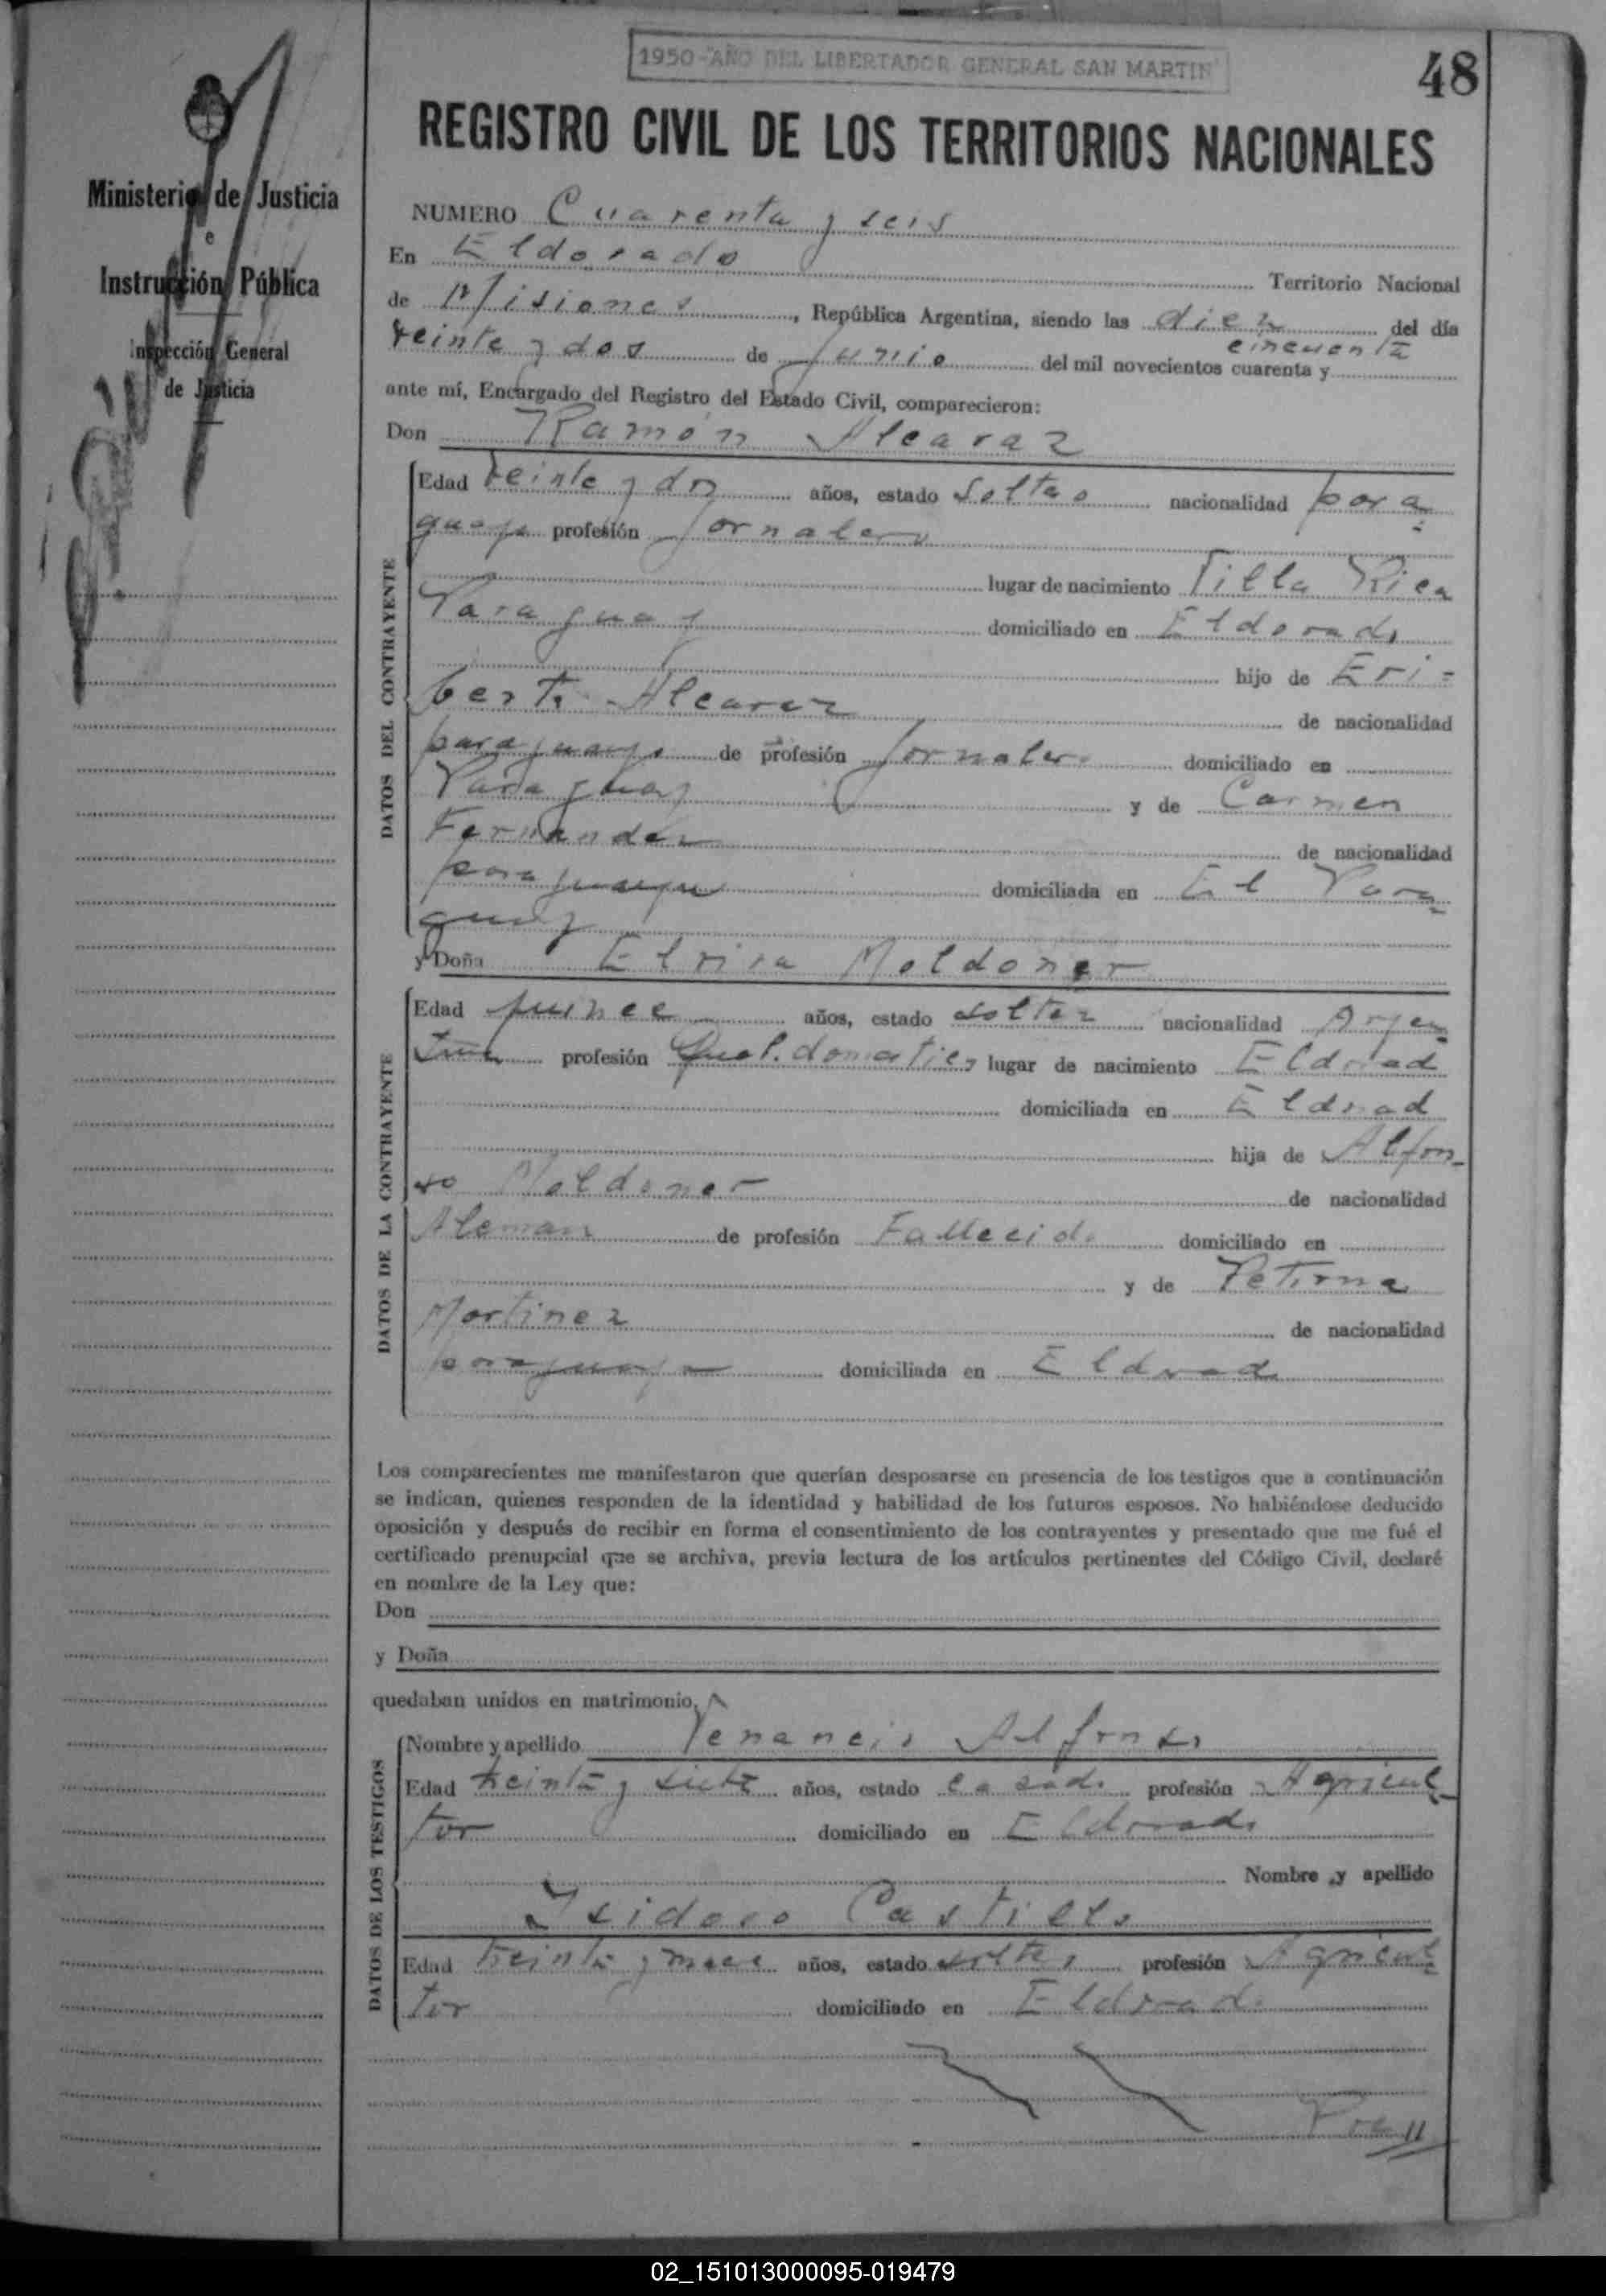 1950-"AÑO DEL LIBERTADOR GENERAL SAN MARTIN"
48
REGISTRO CIVIL DE LOS TERRITORIOS NACIONALES
Ministerio de Justicia
e
Instrucción Pública
Inspección General
de Justicia
NUMERO Cuarenta y seis
En Eldorado
Territorio Nacional
de Misiones, República Argentina, siendo las diez del día
veinte y dos de Junio del mil novecientos cuarenta y cincuenta
ante mí, Encargado del Registro del Estado Civil, comparecieron:
Don Ramón Alcaraz
DATOS DEL CONTRAYENTE
Edad veinte y dos años, estado soltero nacionalidad para=
guayo profesión Jornalero
lugar de nacimiento Villa Rica
Paraguay domiciliado en Eldorado
hijo de Eri=
berto Alcaraz de nacionalidad
paraguayo de profesión jornalero domiciliado en
Paraguay y de Carmen
Fernandez de nacionalidad
paraguaya domiciliada en El Para=
guay
y Doña Elvira Moldoner
DATOS DE LA CONTRAYENTE
Edad quince años, estado soltera nacionalidad Argen=
tina profesión domestico lugar de nacimiento Eldorado
domiciliada en Eldorado
hija de Alfon-
so Moldoner de nacionalidad
Aleman de profesión Fallecido domiciliado en
y de Petrona
Martinez de nacionalidad
paraguaya domiciliada en Eldorado
Los comparecientes me manifestaron que querían desposarse en presencia de los testigos que a continuación
se indican, quienes responden de la identidad y habilidad de los futuros esposos. No habiéndose deducido
oposición y después de recibir en forma el consentimiento de los contrayentes y presentado que me fué el
certificado prenupcial que se archiva, previa lectura de los artículos pertinentes del Código Civil, declaré
en nombre de la Ley que:
Don
y Doña
quedaban unidos en matrimonio.
DATOS DE LOS TESTIGOS
Nombre y apellido Venancio Alfonso
Edad treinta y siete años, estado casado profesión Agricul=
tor domiciliado en Eldorado
Nombre y apellido
Isidoro Castillo
Edad treinta y nueve años, estado soltero profesión Agricul=
tor domiciliado en Eldorado
02_151013000095-019479